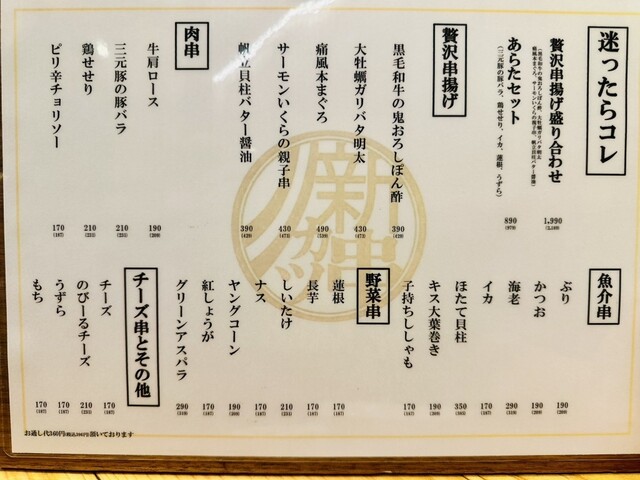 迷ったらコレ
贅沢串揚げ盛り合わせ
1,990
あらたセット
(三元豚の豚バラ、鶏せせり、イカ、蓮根、うずら)
890
贅沢串揚げ
黒毛和牛の鬼おろしぽん酢
390
(429)
大牡蠣ガリバタ明太
430
(473)
痛風本まぐろ
490
(539)
サーモンいくらの親子串
430
(473)
帆立貝柱バター醤油
390
(429)
肉串
牛肩ロース
190
(209)
三元豚の豚バラ
210
(231)
鶏せせり
210
(231)
ピリ辛チョリソー
170
(187)
魚介串
ぶり
190
(209)
かつお
190
(209)
海老
290
(319)
イカ
170
(187)
ほたて貝柱
350
キス大葉巻き
190
(209)
子持ちししゃも
170
(187)
野菜串
蓮根
170
(187)
長芋
170
(187)
しいたけ
210
(231)
ナス
170
(187)
ヤングコーン
190
(209)
紅しょうが
170
(187)
グリーンアスパラ
290
(319)
チーズ串とその他
チーズ
170
(187)
のびーるチーズ
210
(231)
うずら
170
(187)
もち
170
(187)
お通し代360円(税込396円)頂いております
新串カツ